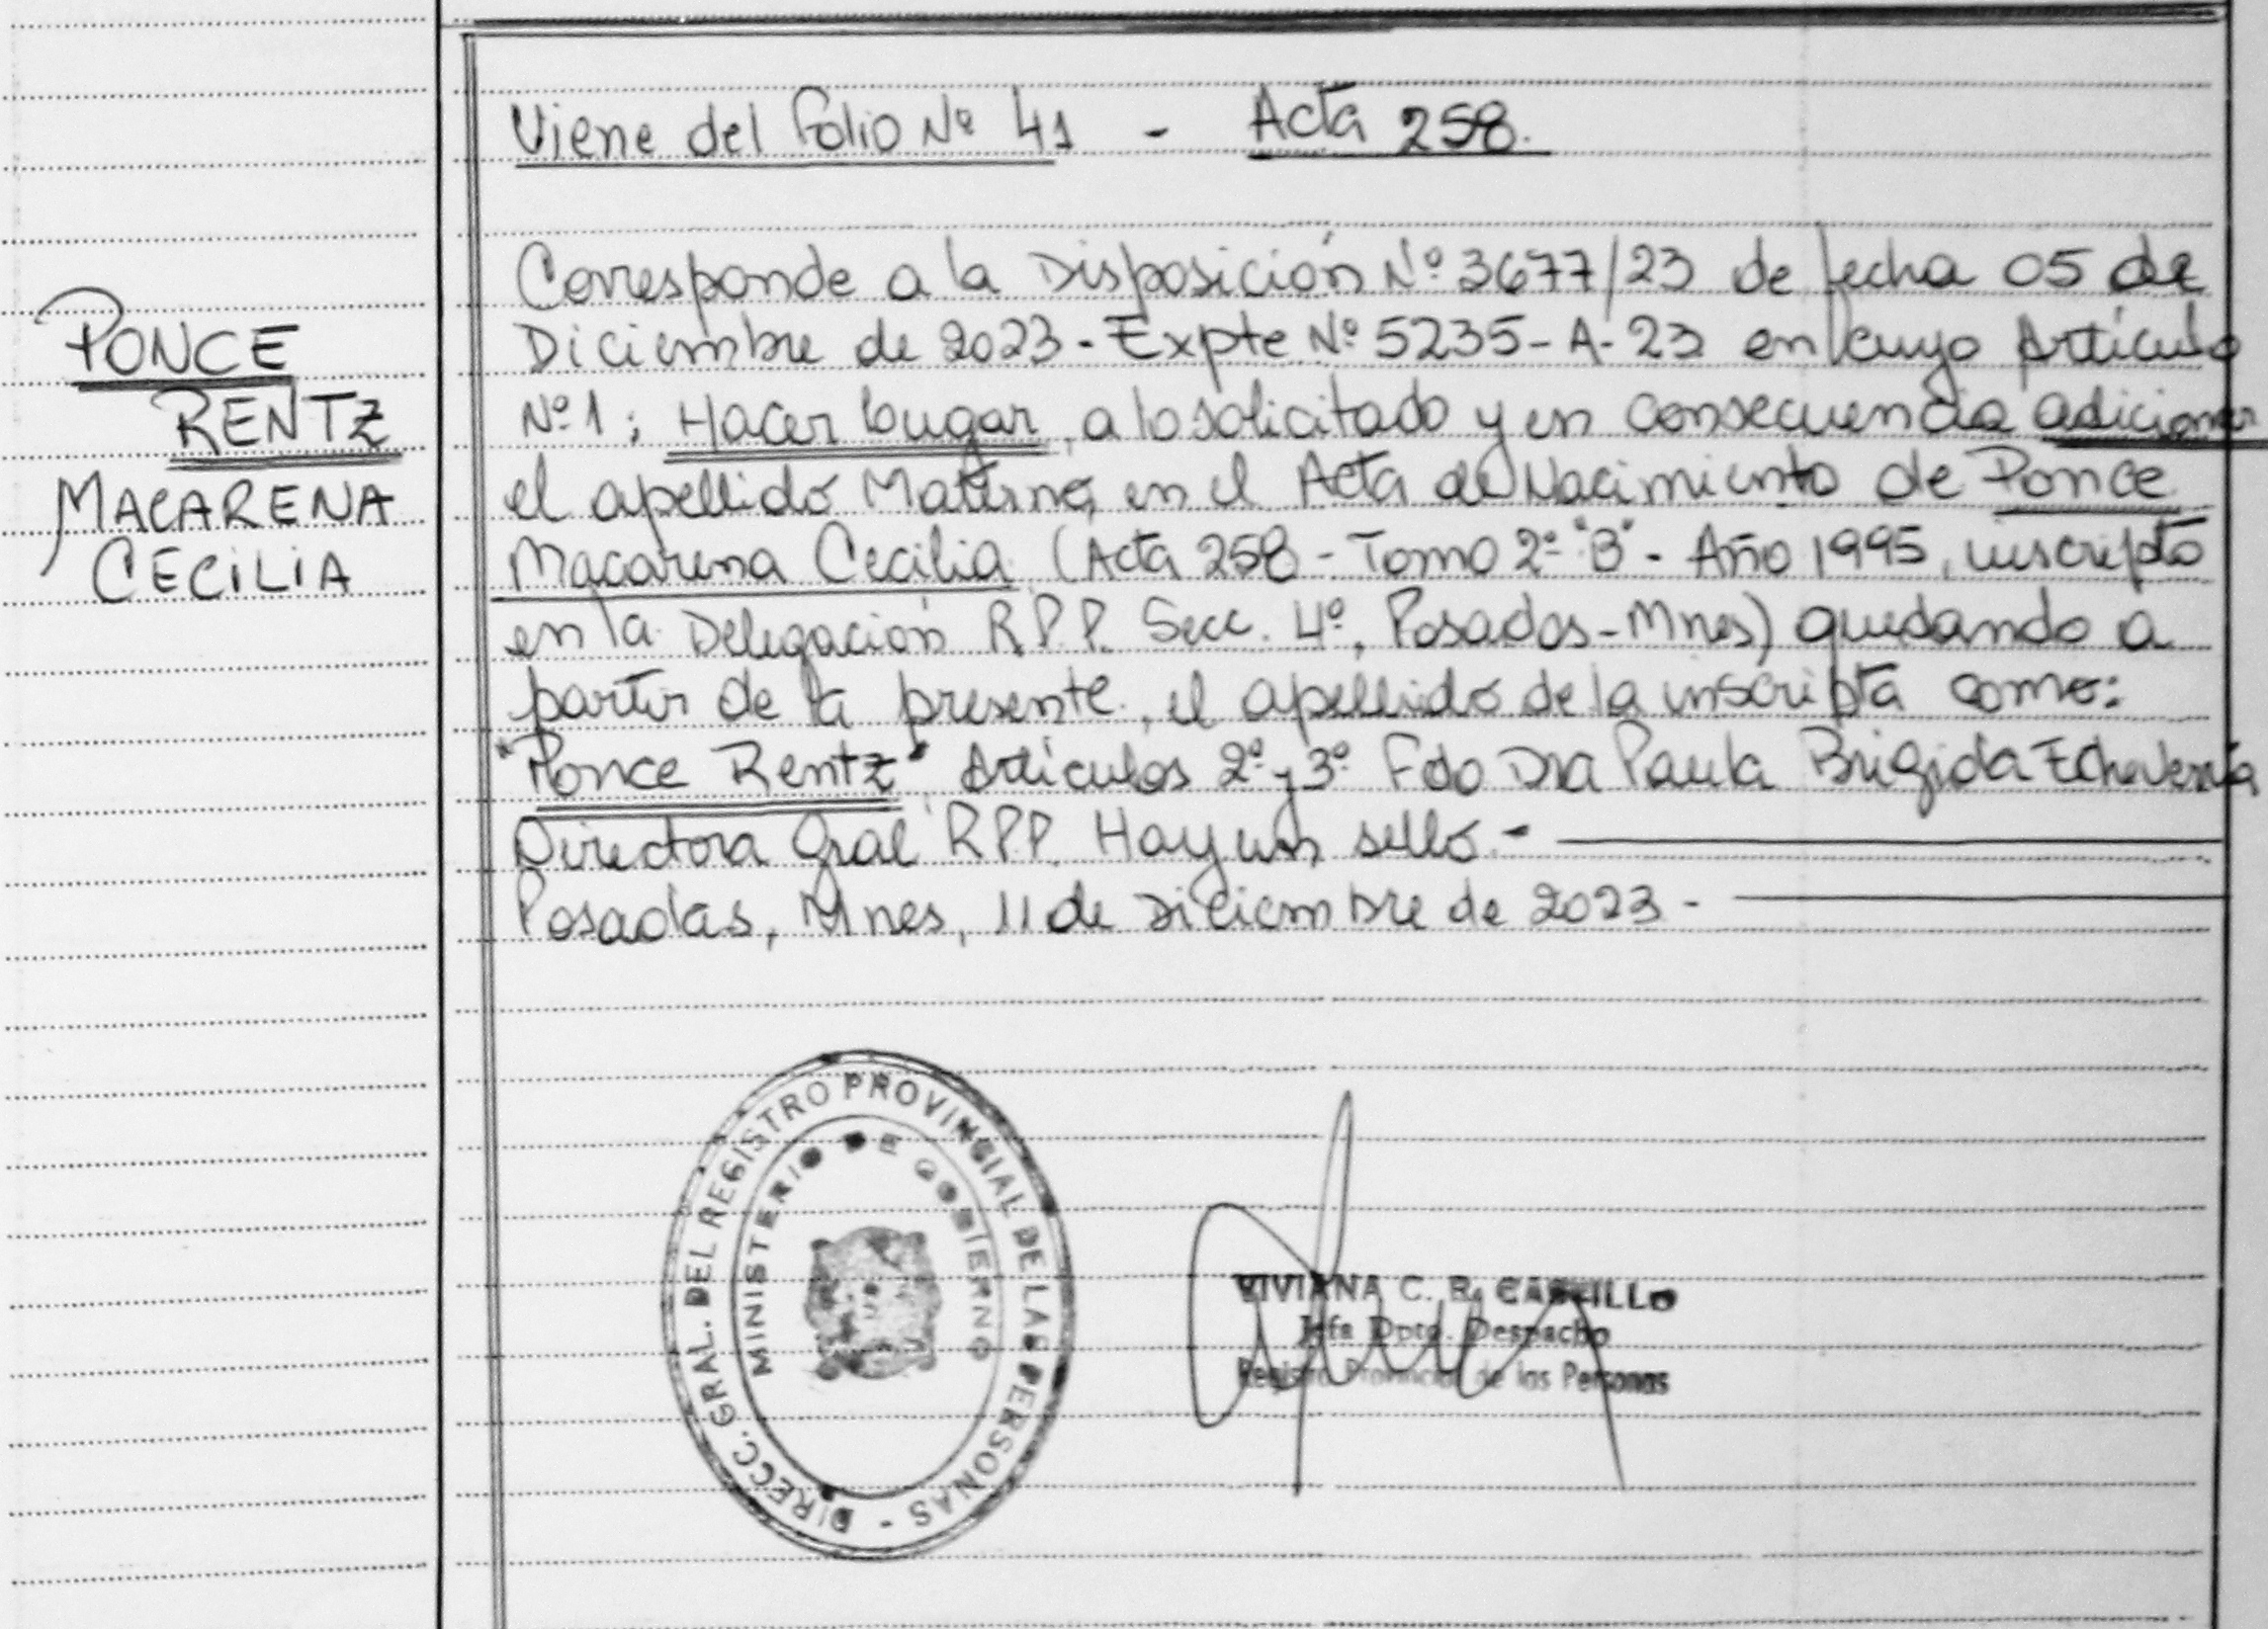 Viene del folio Nº 41 - Acta 258.
PONCE
RENTZ
MACARENA
CECILIA
Corresponde a la Disposición Nº 3677/23 de fecha 05 de
Diciembre de 2023 - Expte Nº 5235-A-23 en cuyo Artículo
Nº 1: Hacer lugar, a lo solicitado y en consecuencia adicionar
el apellido Materno, en el Acta de Nacimiento de Ponce
Macarena Cecilia (Acta 258 - Tomo 2º "B" - Año 1995, inscripta
en la Delegación R.P.P. Secc. 4º, Posadas - Mnes) quedando a
partir de la presente, el apellido de la inscripta como:
"Ponce Rentz" Artículos 2º y 3º Fdo Dra Paula Brigida Echeverría
Directora Gral R.P.P. Hay un sello.-
Posadas, Mnes, 11 de Diciembre de 2023 -
DIRECC. GRAL. DEL REGISTRO PROVINCIAL DE LAS PERSONAS -
MINISTERIO DE GOBIERNO
VIVIANA C. R.
Jefa Dpto. Despacho
Registro Provincial de las Personas